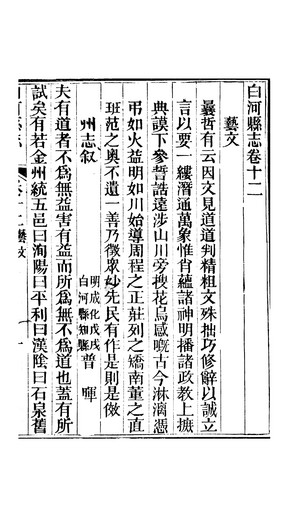 白河縣志卷十二
藝文
曩哲有云因文見道道判精粗文殊拙巧修辭以誠立
言以要一縷潛通萬象惟肖蘊諸神明播諸政教上摭
典謨下參晢誥遠涉山川旁搜花鳥感嘅古今淋漓憑
弔如火益明如川始導周程之正莊列之矯南董之直
班范之奧不遺一善乃徵眾妙先民有作是則是倣
州志叙
明成化戊戌白河縣知縣 普暉
夫有道者不為無益害有益而所為無不為道也蓋有所
試矣有若金州統五邑曰洵陽曰平利曰漢陰曰石泉舊
藝文